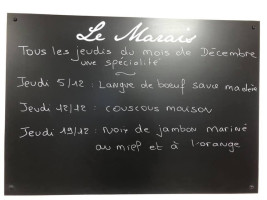 Le Marais
Tous les jeudis du mois de Décembre
une spécialité
Jeudi 5/12 : Langue de boeuf sauce madère
Jeudi 12/12 : couscous maison
Jeudi 19/12 : Noix de jambon mariné
au miel et à l'orange